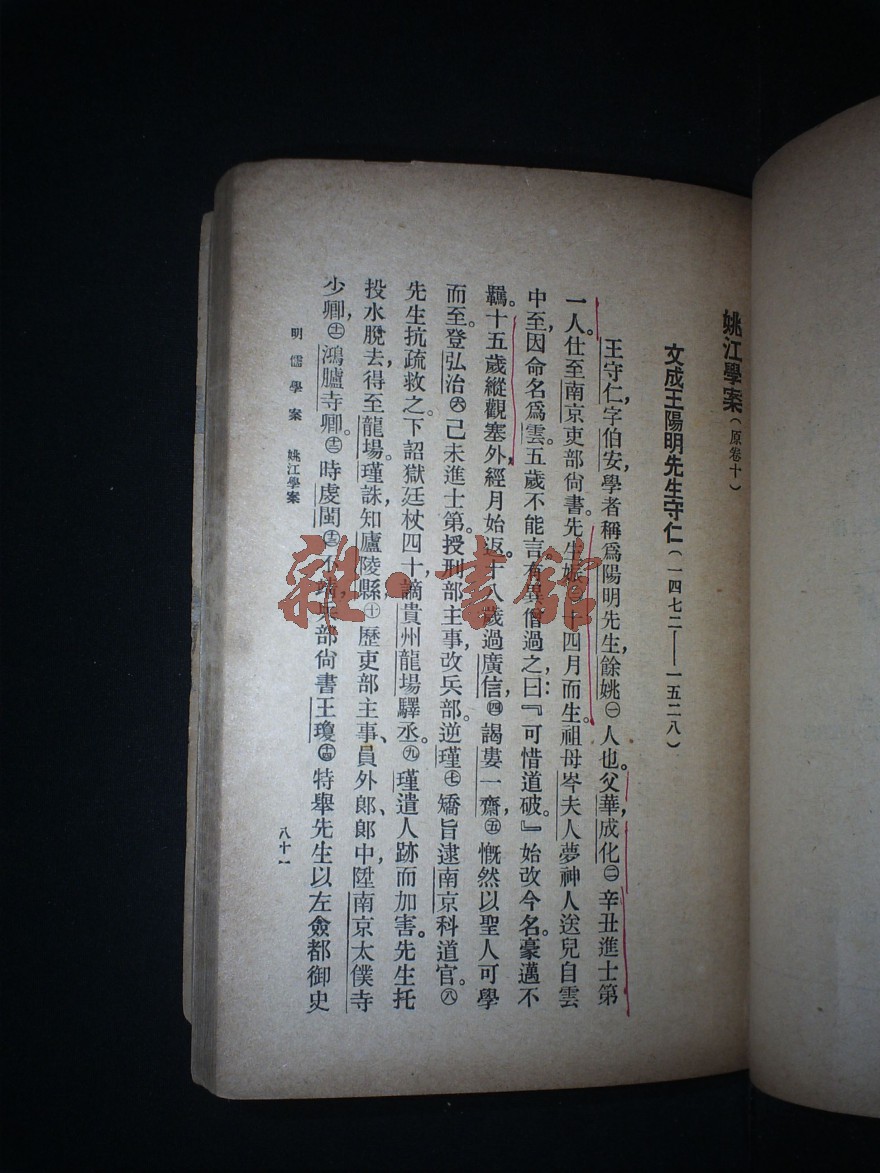 姚江學案(原卷十)
文成王陽明先生守仁(一四七二——一五二八)
王守仁,字伯安,學者稱爲陽明先生,餘姚㊀人也。父華,成化㊁辛丑進士第
一人。仕至南京吏部尚書。先生娠十四月而生。祖母岑夫人夢神人送兒自雲
中至,因命名爲雲。五歲不能言。有異僧過之,曰:『可惜道破。』始改今名。豪邁不
羈。十五歲縱觀塞外,經月始返。十八歲過廣信,㊃謁婁一齋,㊄慨然以聖人可學
而至。登弘治㊅己未進士第。授刑部主事,改兵部。逆瑾㊆矯旨逮南京科道官。㊇
先生抗疏救之,下詔獄,廷杖四十,謫貴州龍場驛丞。㊈瑾遣人跡而加害。先生托
投水脫去,得至龍場。瑾誅,知廬陵縣,㊉歷吏部主事、員外郎、郎中,陞南京太僕寺
少卿,㊉㊀鴻臚寺卿。㊉㊁時虔閩㊉㊂不靖,兵部尚書王瓊㊉㊃特舉先生以左僉都御史
明儒學案 姚江學案
八十一
雜·書館